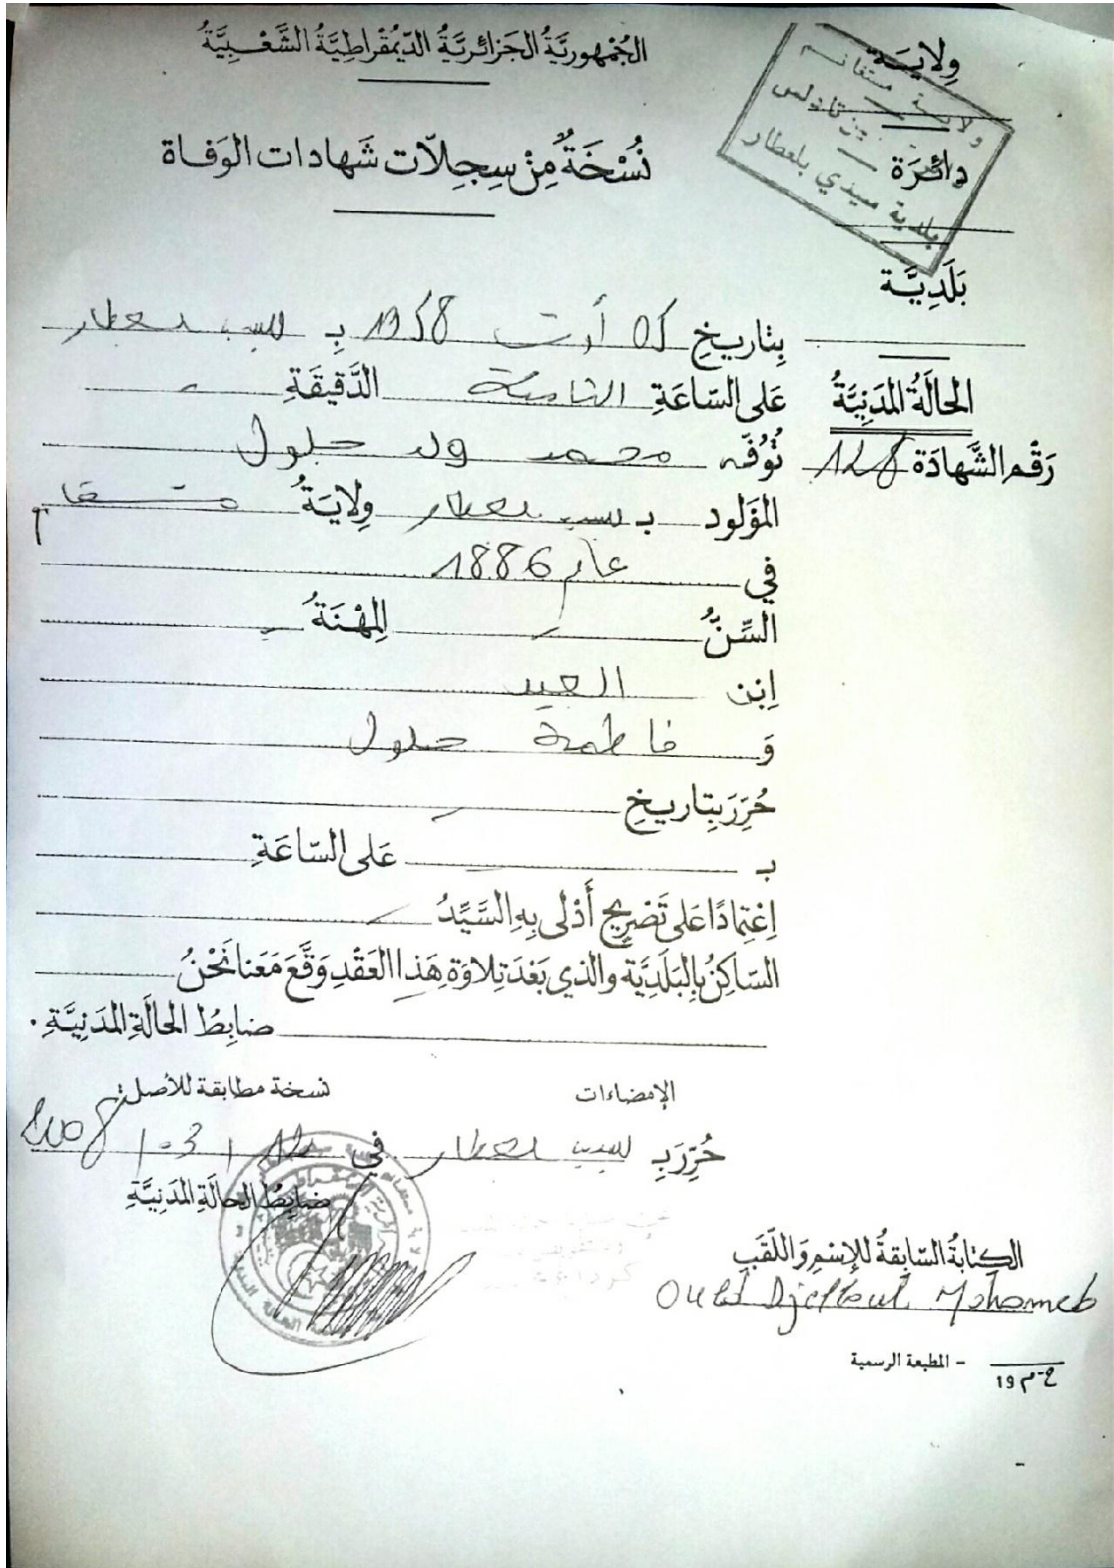 الجُمْهورِيَّةُ الجَزائرِيَّةُ الدّيمُقراطِيَّةُ الشَّعْبِيَّةُ
وِلايَة
ولاية مستغانم
دائرَة
بلدية سيدي بلعطار
نُسْخَةٌ مِنْ سِجِلاّت شَهادات الوَفاة
بَلَدِيَّة
بِتاريخِ 05 أوت 1958 بِ سيدي بلعطار
الحالَةُ المَدَنِيَّةُ
عَلى السّاعَةِ الثامنة الدَّقيقَةِ -
رَقْم الشَّهادَة 128
تُوُفيَ محمد ولد جلول
المَوْلود بـ سيدي بلعطار وِلايَةُ مستغانم
في عام 1886
السِّنُّ - المِهْنَةُ -
اِبْن العيد
وَ فاطمة جلول
حُرِّرَ بِتاريخِ -
بـ عَلى السّاعَةِ
اِعْتِمادًا عَلى تَصْريحٍ أَدْلى بِهِ السَّيِّدُ -
السّاكِنُ بِالبَلَدِيَّة والذي بَعْدَ تِلاوَة هَذا العَقْدِ وَقَّعَ مَعَنا نَحْنُ
ضابِطُ الحالَةِ المَدَنِيَّةِ .
الإمضاءات
نسخة مطابقة للأصل:
حُرِّرَ بِ سيدي بلعطار في 2008
ضابِطُ الحالَةِ المَدَنِيَّةِ
الكِتابَةُ السّابِقَةُ لِلإسْمِ وَاللَّقَبِ
Ould Djelloul Mohamed
ح-م 19 - المطبعة الرسمية